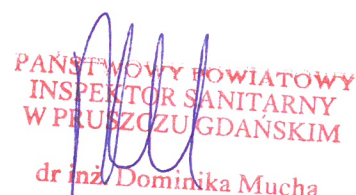 PAŃSTWOWY POWIATOWY
INSPEKTOR SANITARNY
W PRUSZCZU GDAŃSKIM
dr inż. Dominika Mucha